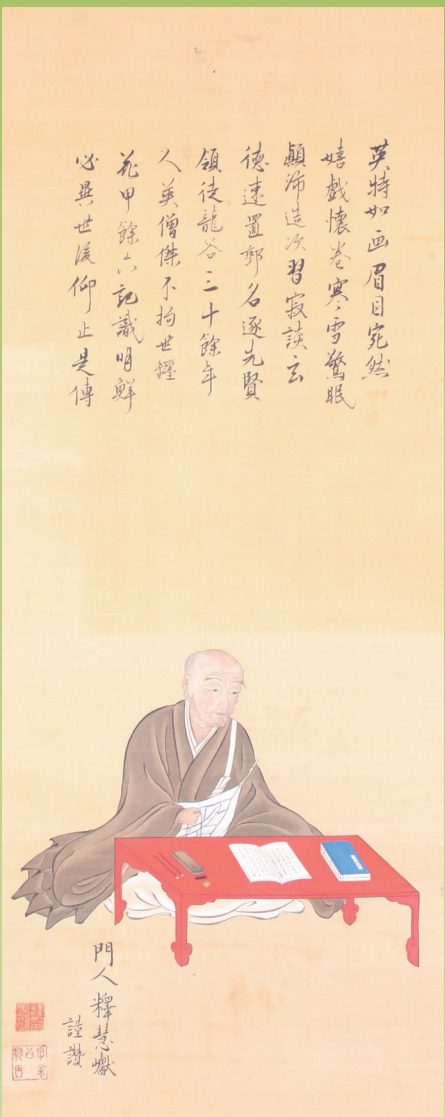 英特如画眉目宛然
嬉戯懐巻寒雪驚眠
顛沛造次習寂談玄
徳速置郵名逐先賢
領徒龍谷三十餘年
人英僧傑不拘世纒
花甲餘六記識明鮮
必異世後仰止是傳
門人釋慧嶽
謹讃